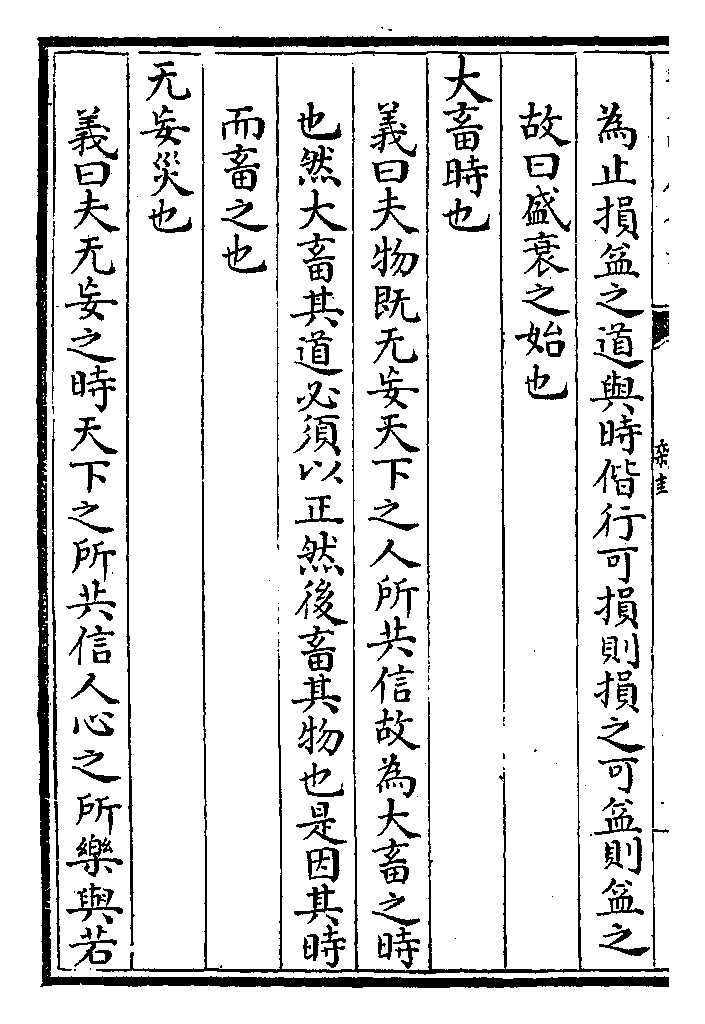 為止損益之道與時偕行可損則損之可益則益之
故曰盛衰之始也
大畜時也
義曰夫物既无妄天下之人所共信故為大畜之時
也然大畜其道必須以正然後畜其物也是因其時
而畜之也
无妄災也
義曰夫无妄之時天下之所共信人心之所樂與若